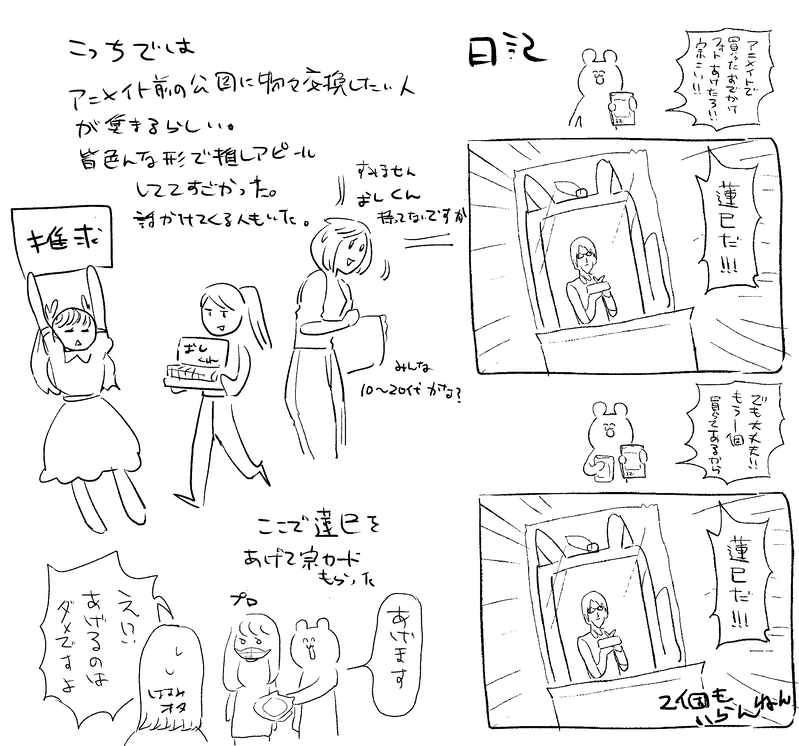 日記
アニメイトで
買ったおでかけ
フォトあけたろ!!
宗こい!!
蓮巳だ!!!
でも大丈夫!!
もう一個
買ってあるから
蓮巳だ!!!
2個も
いらんねん
こっちでは
アニメイト前の公園に物々交換したい人
が集まるらしい。
皆色んな形で推しアピール
しててすごかった。
話かけてくる人もいた。
推求
おし
くん
すみません
おしくん
持ってないですか
みんな
10〜20代かな?
ここで蓮巳を
あげて宗カード
もらった
あげます
プロ
えい
あげるのは
ダメですよ
オタ